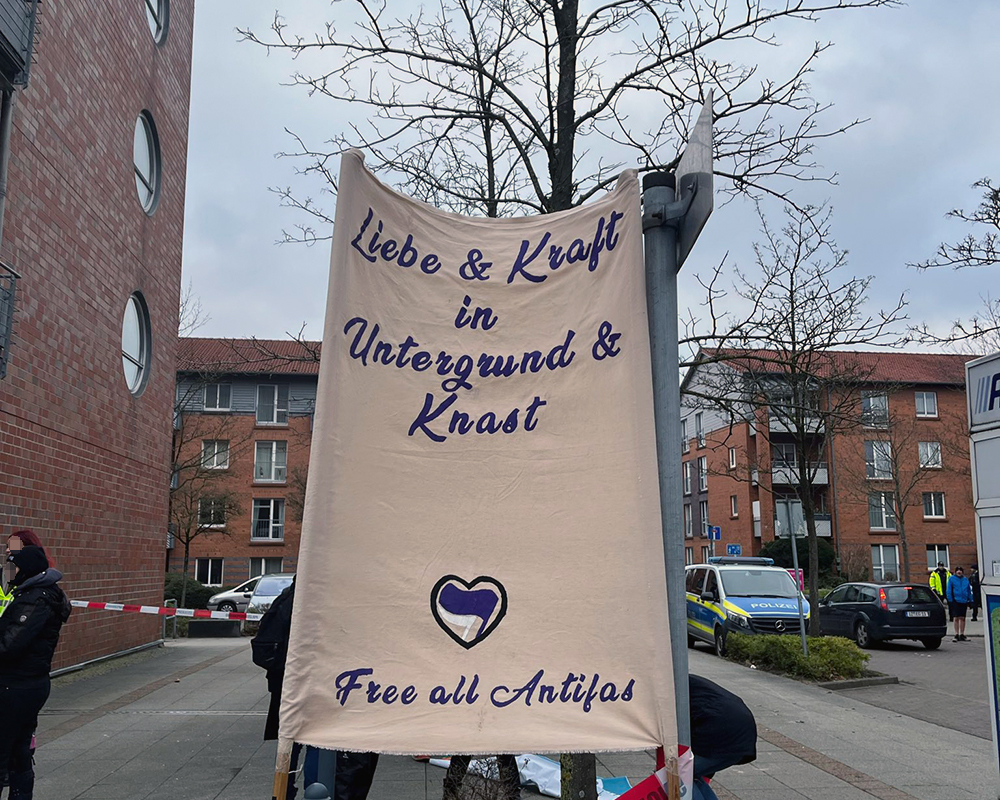 Liebe & Kraft
in
Untergrund &
Knast
Free all Antifas
POLIZEI